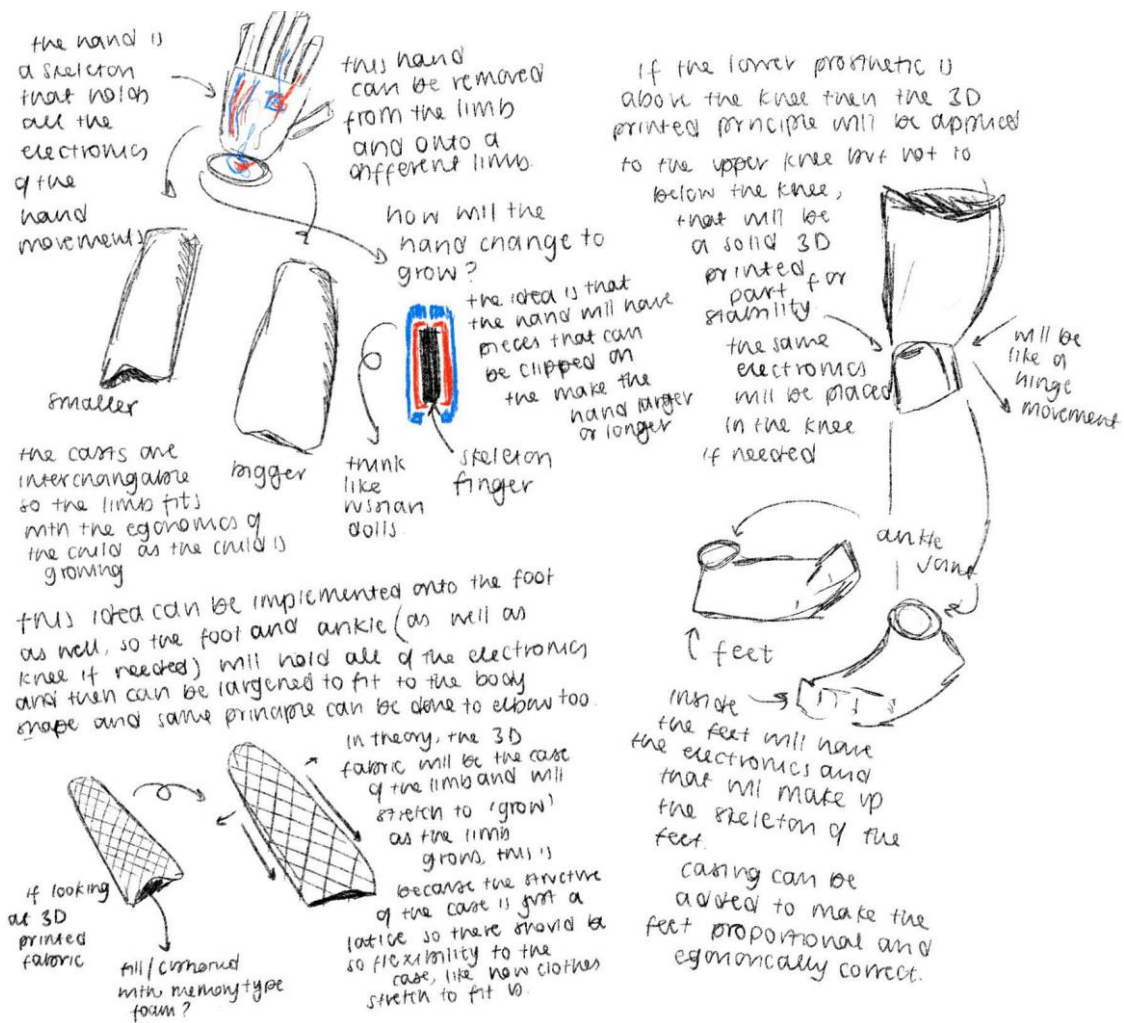 the hand is
a skeleton
that holds
all the
electronics
of the
hand
movements
this hand
can be removed
from the limb
and onto a
different limb.
how will the
hand change to
grow?
the idea is that
the hand will have
pieces that can
be clipped on
the make the
hand larger
or longer
smaller
bigger
think
like
russian
dolls.
skeleton
finger
the casts are
interchangable
so the limb fits
with the egonomics of
the child as the child is
growing
this idea can be implemented onto the foot
as well, so the foot and ankle (as well as
knee if needed) will hold all of the electronics
and then can be largened to fit to the body
shape and same principle can be done to elbow too.
if looking
at 3D
printed
fabric
fill/cushioned
with memory type
foam?
in theory, the 3D
fabric will be the case
of the limb and will
stretch to 'grow'
as the limb
grows, this is
because the structure
of the case is just a
latice so there should be
so flexibility to the
case, like how clothes
stretch to fit us.
if the lower prosthetic is
above the knee then the 3D
printed principle will be applied
to the upper knee but not to
below the knee,
that will be
a solid 3D
printed
part for
stability
the same
electronics
will be placed
in the knee
if needed
will be
like a
hinge
movement
ankle
joint
feet
inside
the feet will have
the electronics and
that will make up
the skeleton of the
feet.
casing can be
added to make the
feet proportional and
egonomically correct.